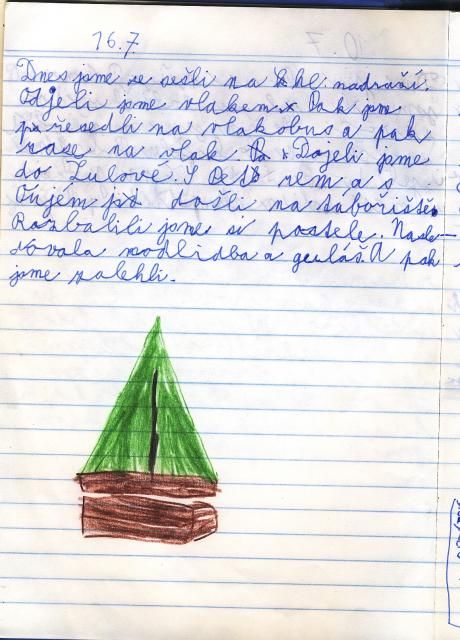 16.7
Dnes jsme se sešli na hl. nadraží.
Odjeli jsme vlakem. Pak jsme
přesedli na vlakobus a pak
zase na vlak. Dojeli jsme
do Žulové. S a s
došli na tábořiště.
Rozbalili jsme si postele. Násle-
dovala modlidba a guláš. A pak
jsme zalehli.